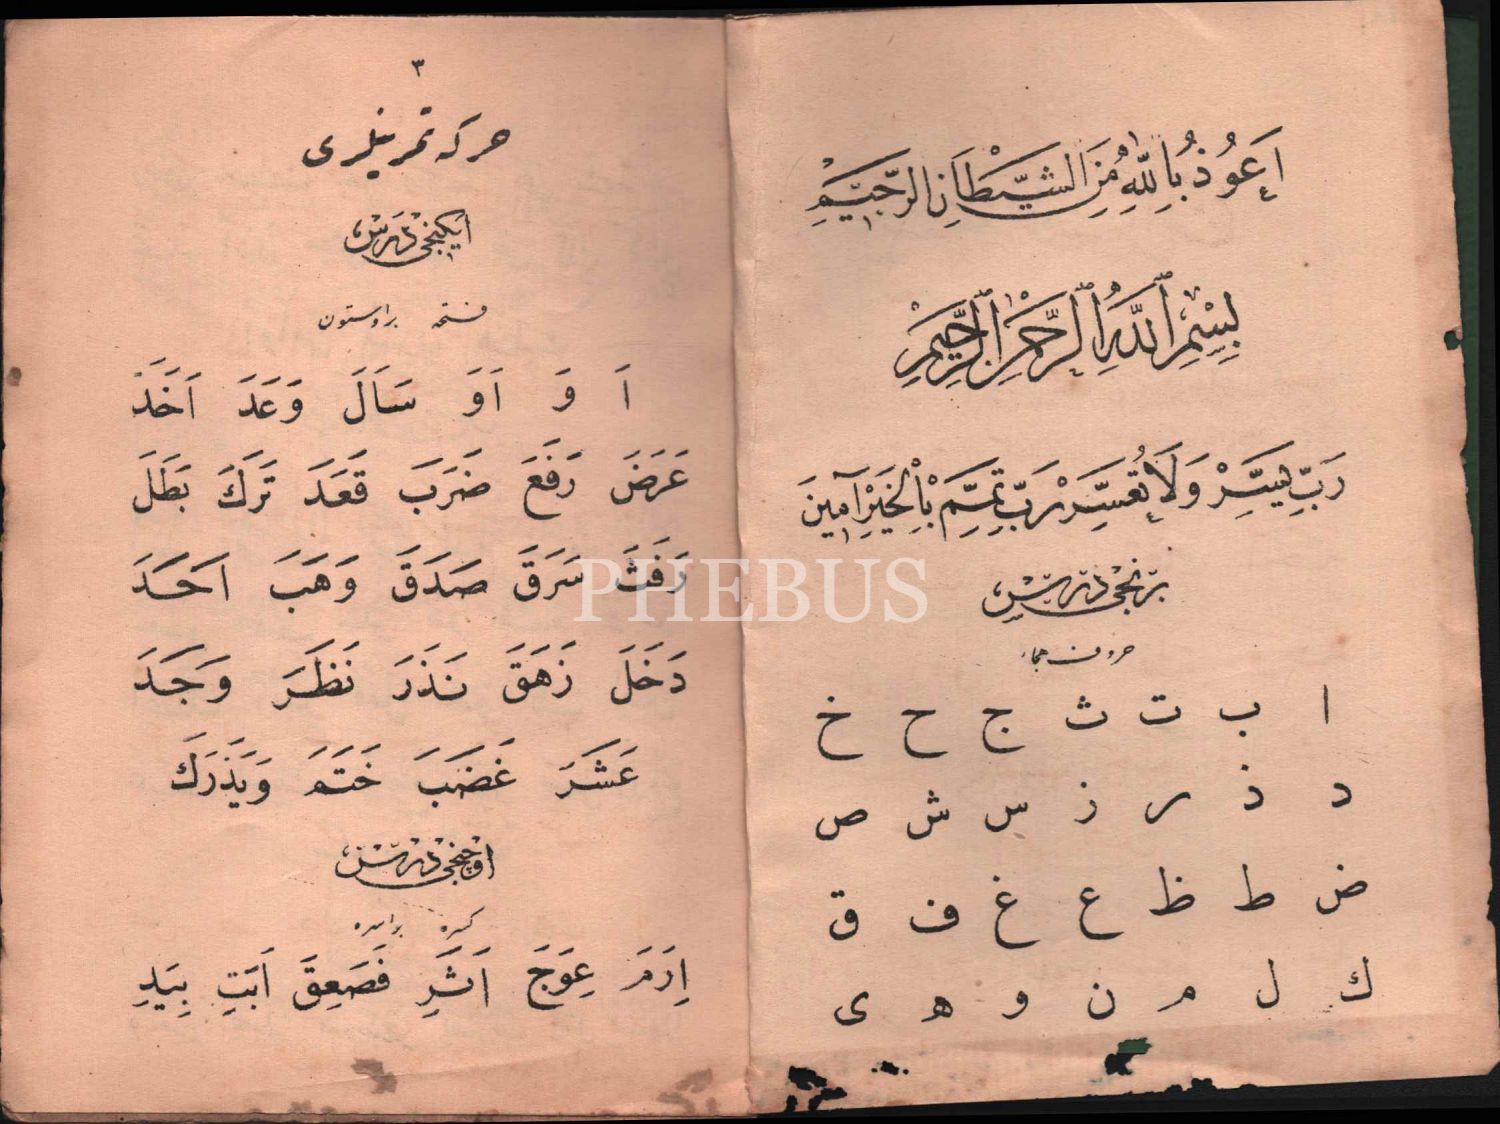 اَعُوذُ بِاللّٰهِ مِنَ الشَّيْطَانِ الرَّجِيمِ
بِسْمِ اللّٰهِ الرَّحْمٰنِ الرَّحِيمِ
رَبِّ يَسِّرْ وَلَا تُعَسِّرْ رَبِّ تَمِّمْ بِالْخَيْرِ آمِينَ
برنجى درس
حروف هجاء
ا ب ت ث ج ح خ
د ذ ر ز س ش ص
ض ط ظ ع غ ف ق
ك ل م ن و ه ى
٣
حركه تمرينلرى
ايكنجى درس
فتحه براوستون
اَ وَ اَوَ سَاَلَ وَعَدَ اَخَذَ
عَرَضَ رَفَعَ ضَرَبَ قَعَدَ تَرَكَ بَطَلَ
رَفَثَ سَرَقَ صَدَقَ وَهَبَ اَحَدَ
دَخَلَ زَهَقَ نَذَرَ نَظَرَ وَجَدَ
عَشَرَ غَضَبَ خَتَمَ وَيَذَرَكَ
اوچنجى درس
كسره براسره
اِرَمَ عِوَجَ اَثَرِ فَصَعِقَ اَبَتِ بِيَدِ
PHEBUS